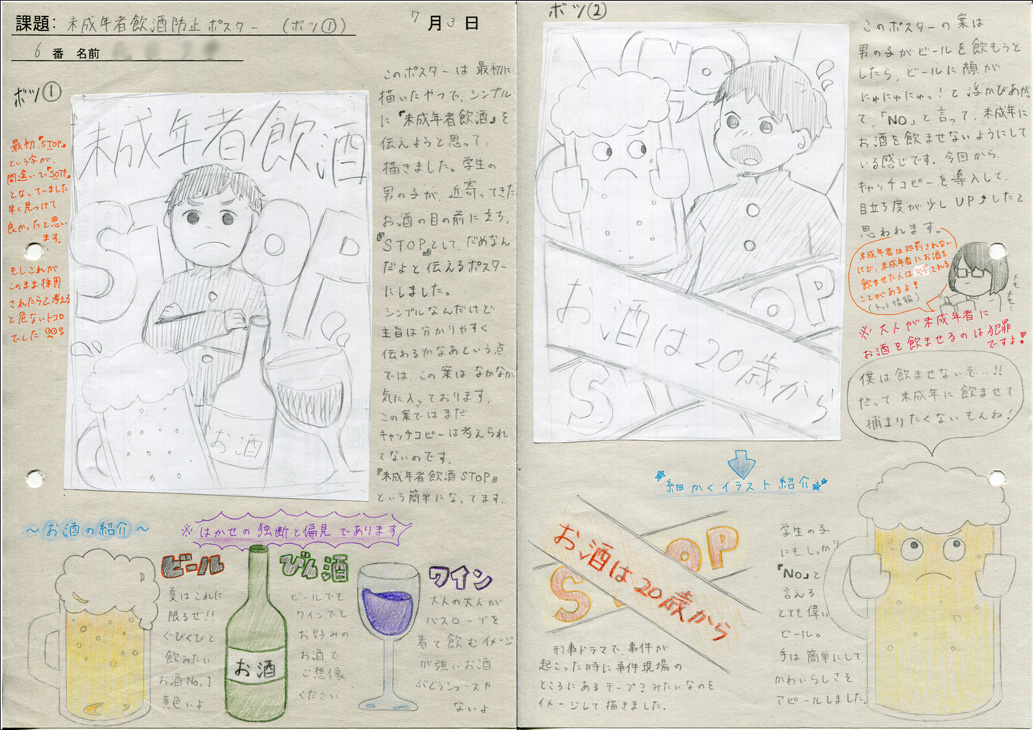 課題: 未成年者飲酒防止ポスター (ボツ①)
7月3日
6番 名前
ボツ①
最初『STOP』
という字が、
間違いで『SOTP』
となっていました
早く見つけて
良かったと思い
ます。
もしこれが
このまま採用
されたらと考える
と危ないトコロ
でした
未成年者飲酒
STOP
お酒
このポスターは最初に
描いたやつで、シンプル
に『未成年者飲酒』を
伝えようと思って、
描きました。学生の
男の子が、近寄ってきた
お酒の目の前に立ち、
『STOP』として、だめなん
だよと伝えるポスター
にしました。
シンプルなんだけど
主旨は分かりやすく
伝わるかなあという点
では、この案はなかなか
気に入っております。
この案ではまだ
キャッチコピーは考えられ
てないのです。
『未成年者飲酒STOP』
という簡単になってます。
~お酒の紹介~
※はかせの独断と偏見であります
ビール
夏はこれに
限るぜ!!
ぐびぐびと
飲みたい
お酒No.1
黄色いよ
びん酒
お酒
ビールでも
ワインでも
お好みの
お酒で
ご想像
ください
ワイン
大人の大人が
バスローブを
着て飲むイメージ
が強いお酒
ぶどうジュースや
ないよ
ボツ②
NO
お酒は20歳から
STOP
このポスターの案は
男の子がビールを飲もうと
したら、ビールに顔が
にゅにゅにゅっ!と浮かびあがっ
て、「NO」と言って、未成年に
お酒を飲ませないようにして
いる感じです。今回から
キャッチコピーを導入して、
目立ち度が少しUPしたと
思われます。
未成年者は処罰されない
けど、未成年者にお酒を
飲ませた人は処罰される
ことがあるよ!
(ネット情報)
メモ
メモ
※大人が未成年者に
お酒を飲ませるのは犯罪
ですよ!
僕は飲ませないぞ…!!
だって未成年に飲ませて
捕まりたくないもんね!
細かくイラスト紹介
お酒は20歳から
STOP
刑事ドラマで、事件が
起こった時に事件現場の
ところにあるテープ?みたいなのを
イメージして描きました。
学生の子
にもしっかり
「No」と
言える
とても偉い
ビール。
手は簡単にして
かわいらしさを
アピールしました。